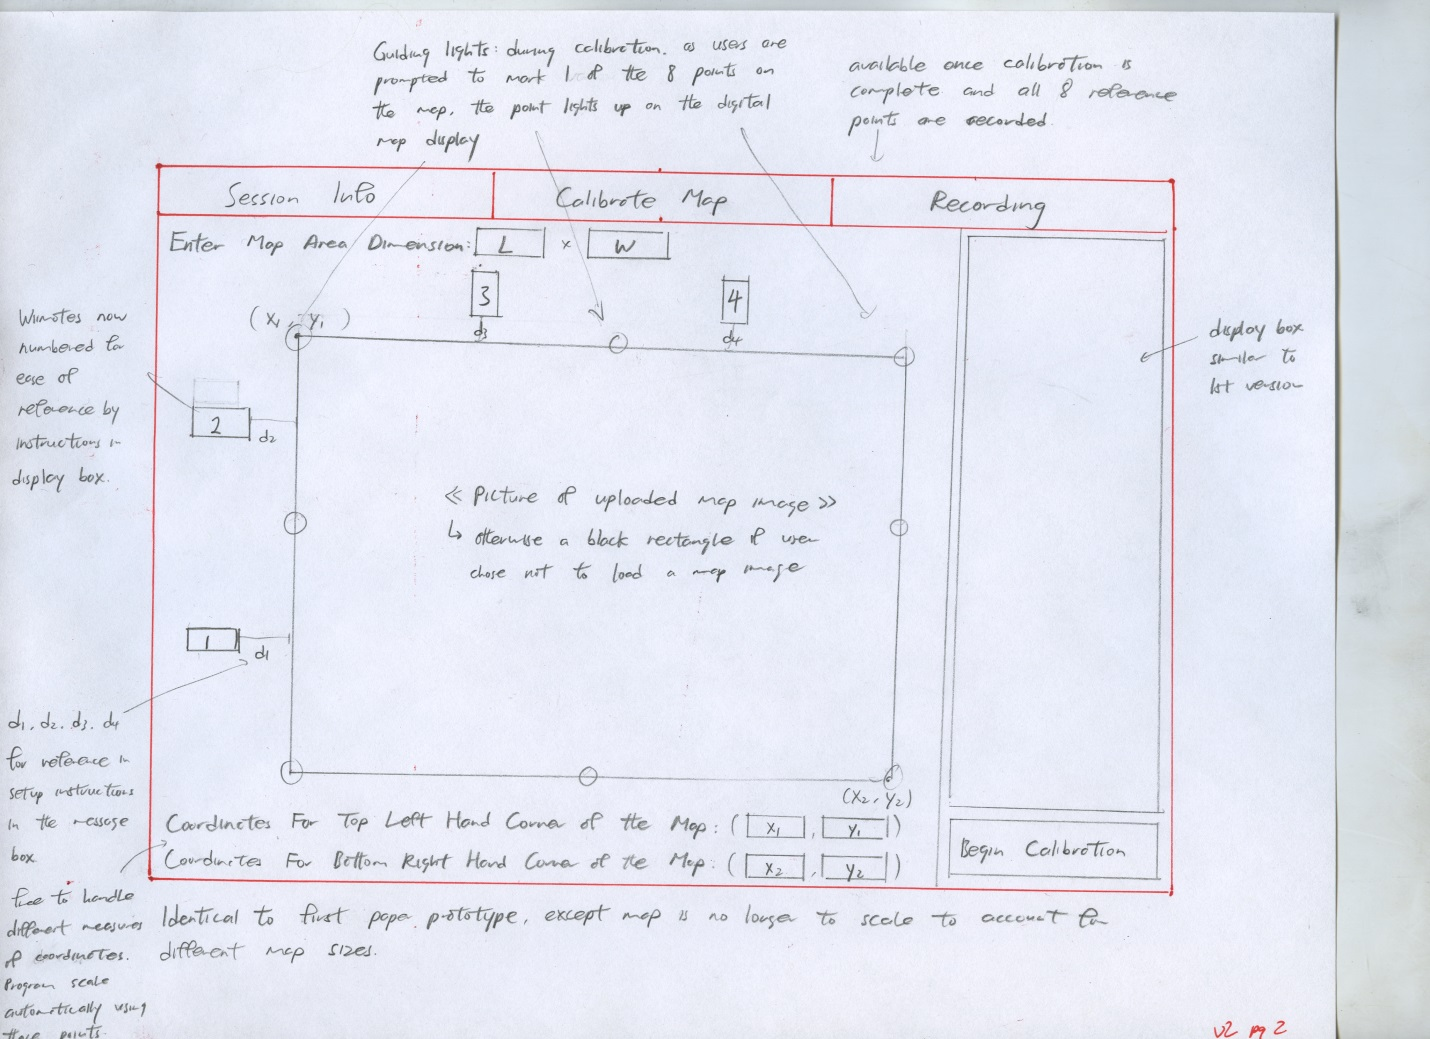 Guiding lights: during calibration, as users are
prompted to mark 1 of the 8 points on
the map, the point lights up on the digital
map display
available once calibration is
complete and all 8 reference
points are recorded.
Session Info
Calibrate Map
Recording
Enter Map Area Dimension: L x W
3
4
d3
d4
(x1, y1)
Wiimotes now
numbered for
ease of
reference by
instructions in
display box.
2
d2
display box
similar to
1st version
<< Picture of uploaded map image >>
↳ otherwise a black rectangle if user
chose not to load a map image
1
d1
d1, d2, d3, d4
for reference in
setup instructions
in the message
box
(x2, y2)
Coordinates For Top Left Hand Corner of the Map: (x1, y1)
Coordinates For Bottom Right Hand Corner of the Map: (x2, y2)
Begin Calibration
free to handle
different measures
of coordinates.
Program scale
automatically using
these points.
Identical to first paper prototype, except map is no longer to scale to account for
different map sizes.
v2 pg 2